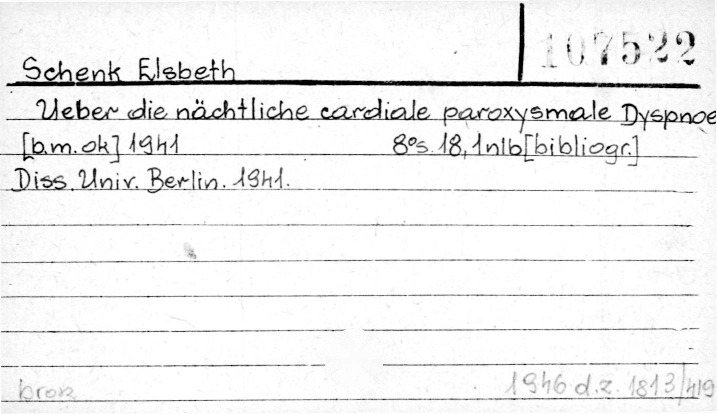 107522
Schenk Elsbeth
Ueber die nächtliche cardiale paroxysmale Dyspnoe
[b.m.ok] 1941 8°s.18,1nlb[bibliogr.]
Diss. Univ. Berlin. 1941.
brosz 1946 d.z. 1813/419